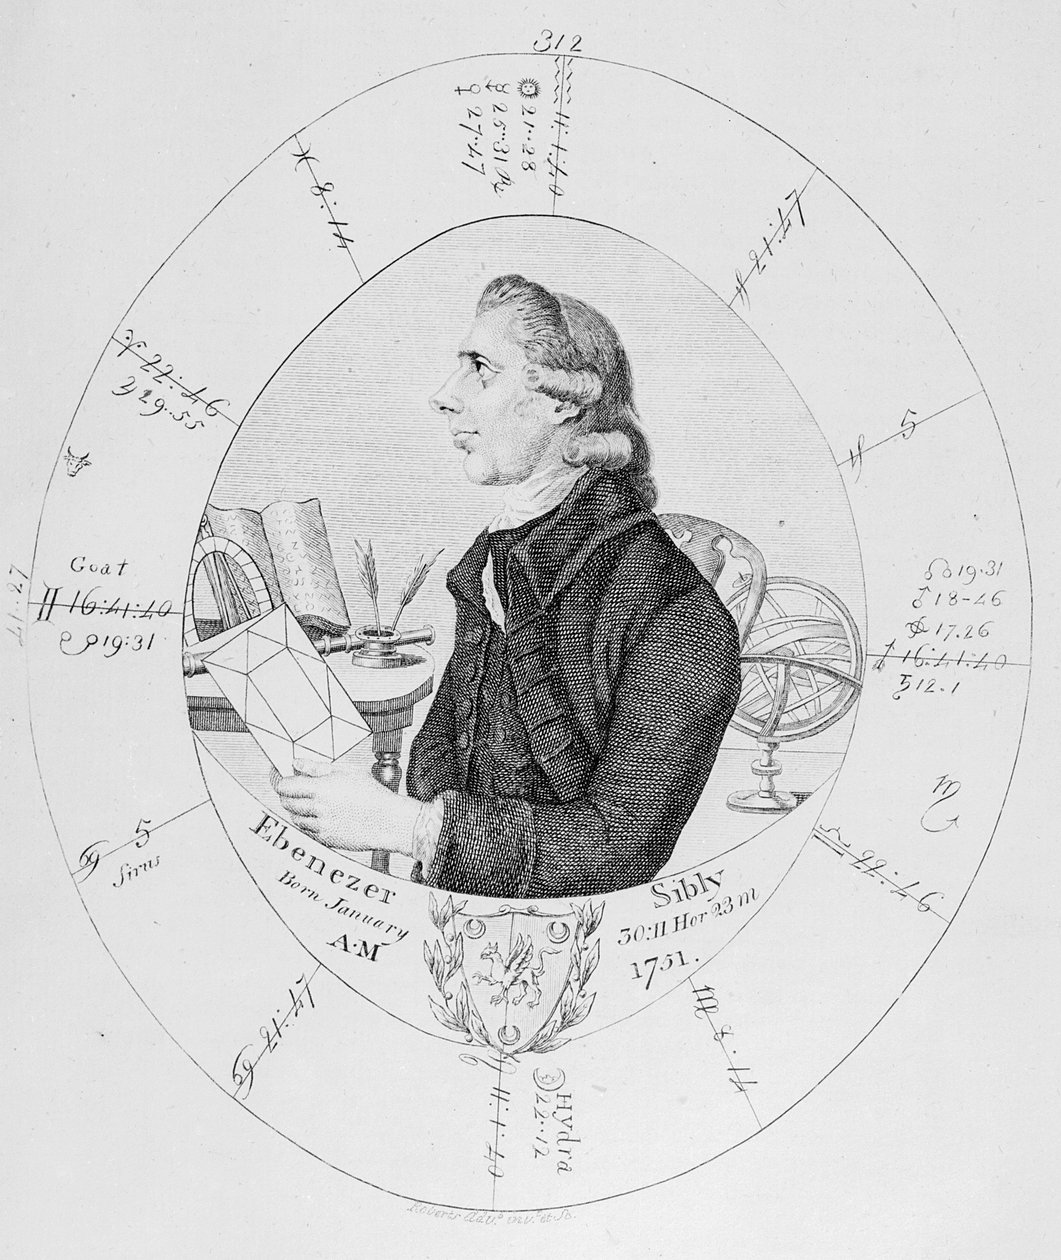 312
♒ 11.1.40
☉ 21..28
☿ 25..31 ℞
♀ 27.47
♓ 8.14
♐ 21.47
♈ 22.46
♃ 29.55
♐ 5
Goat
♊ 16.41.40
☋ 19:31
41.27
☊ 19.31
♂ 18-46
⊕ 17.26
♐ 16.41.40
♄ 12.1
♏
♋ 5
Sirus
♎ 22.46
Ebenezer Sibly
Born January 30:11 Hor 23m
A.M 1751.
♋ 21.47
♏ 8.14
♌ 11.1.40
☽ 22..12
Hydra
Roberts